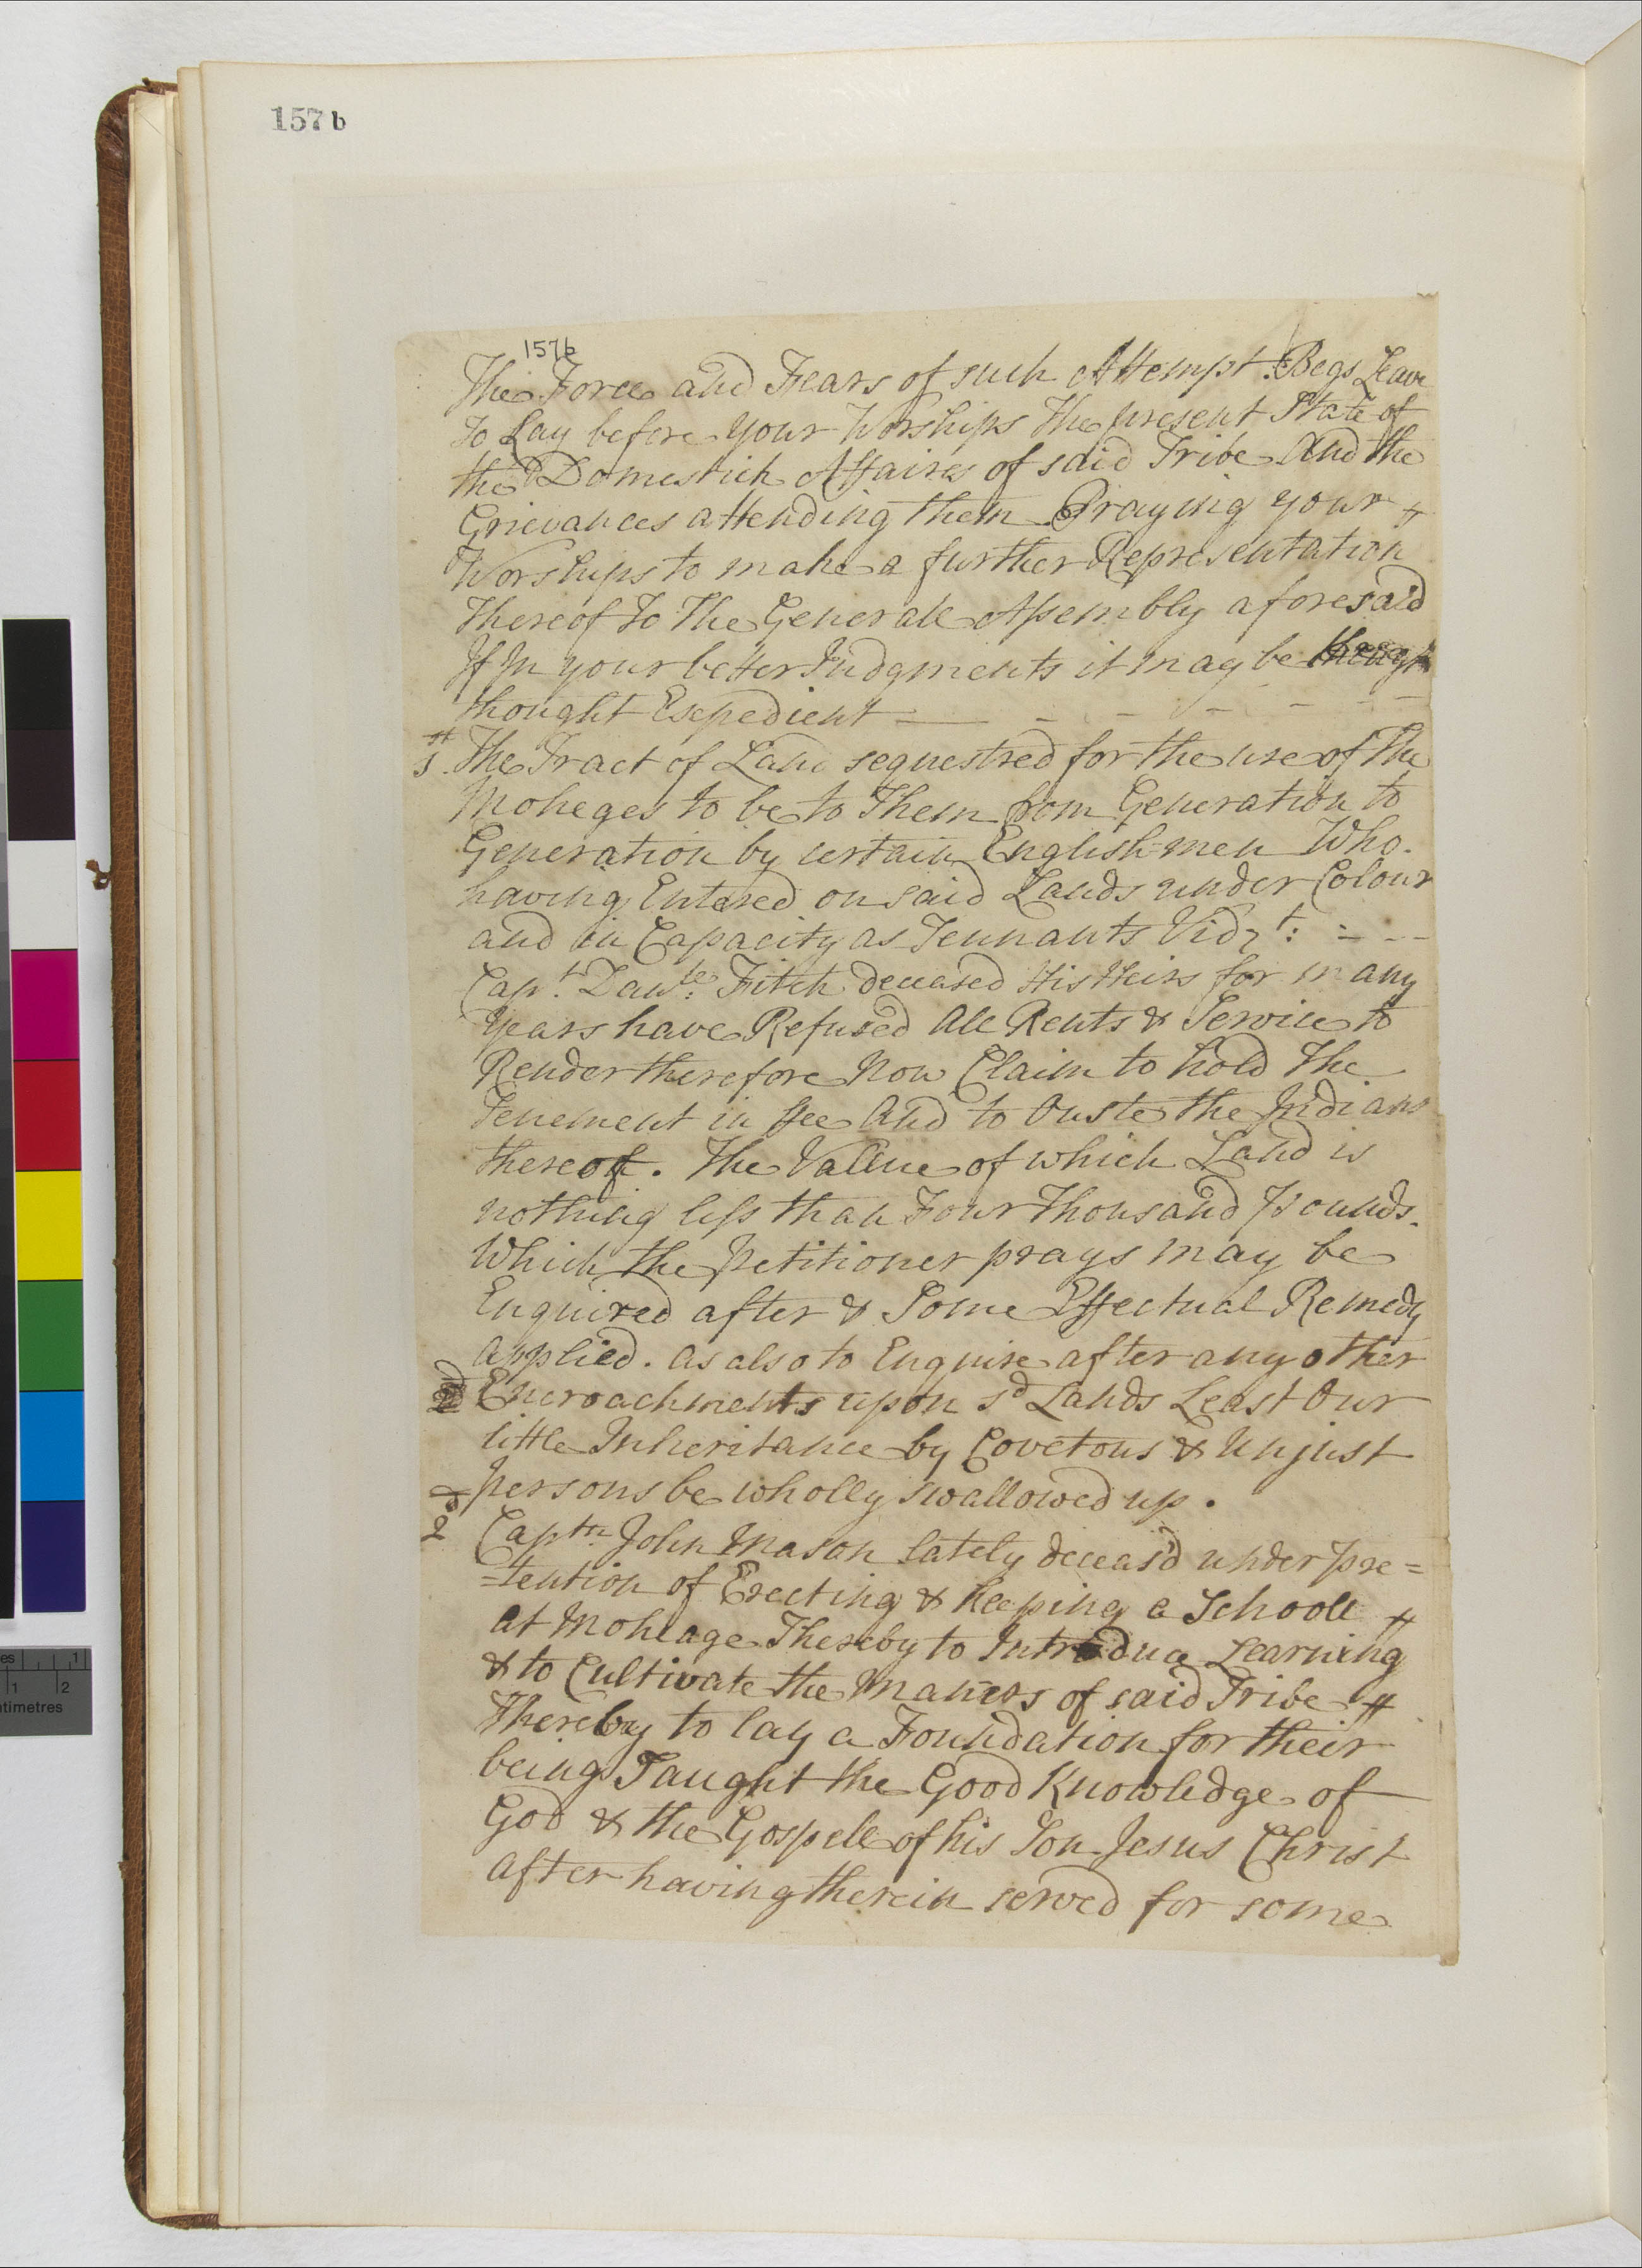 157 b
157b
The Force and Fears of such Attempt. Begs Leave
To Lay before your Worships the present State of
the Domestick Affaires of said Tribe And the
Grievances attending them Praying your
Worships to make a further Representation
Thereof To The Generale Assembly aforesaid
If In your better Judgments it may be though
thought Expedient
1st. The Tract of Land sequestred for the use of The
Moheges to be to Them from Generation to
Generation by certain English-men Who.
having Entered on said Lands under Colour
and in Capacity as Tennants Vidzt:
Capt. Danle: Fitch deceased His Heirs for many
Years have Refused All Rents & Service to
Render therefore Now Claim to hold The
Tenement in fee And to Ouste the Indians
thereof. The Vallue of which Land is
nothing less than Four Thousand Pounds.
Which the Petitioner prays may be
Enquired after & Some Effectual Remedy
Applied. as also to Enquire after any other
Encroachments upon sd Lands Least Our
little Inheritance by Covetous & Unjust
persons be wholly swallowed up.
2d Captn. John Mason lately deceas'd under pre=
=tention of Erecting & Keeping a Schoole
at Moheage Thereby to Introduce Learning
& to Cultivate the Maners of said Tribe
Thereby to lay a Foundation for their
being Taught the Good Knowledge of
God & the Gospelle of his Son Jesus Christ
after having therein served for some
es
1
1
2
ntimetres